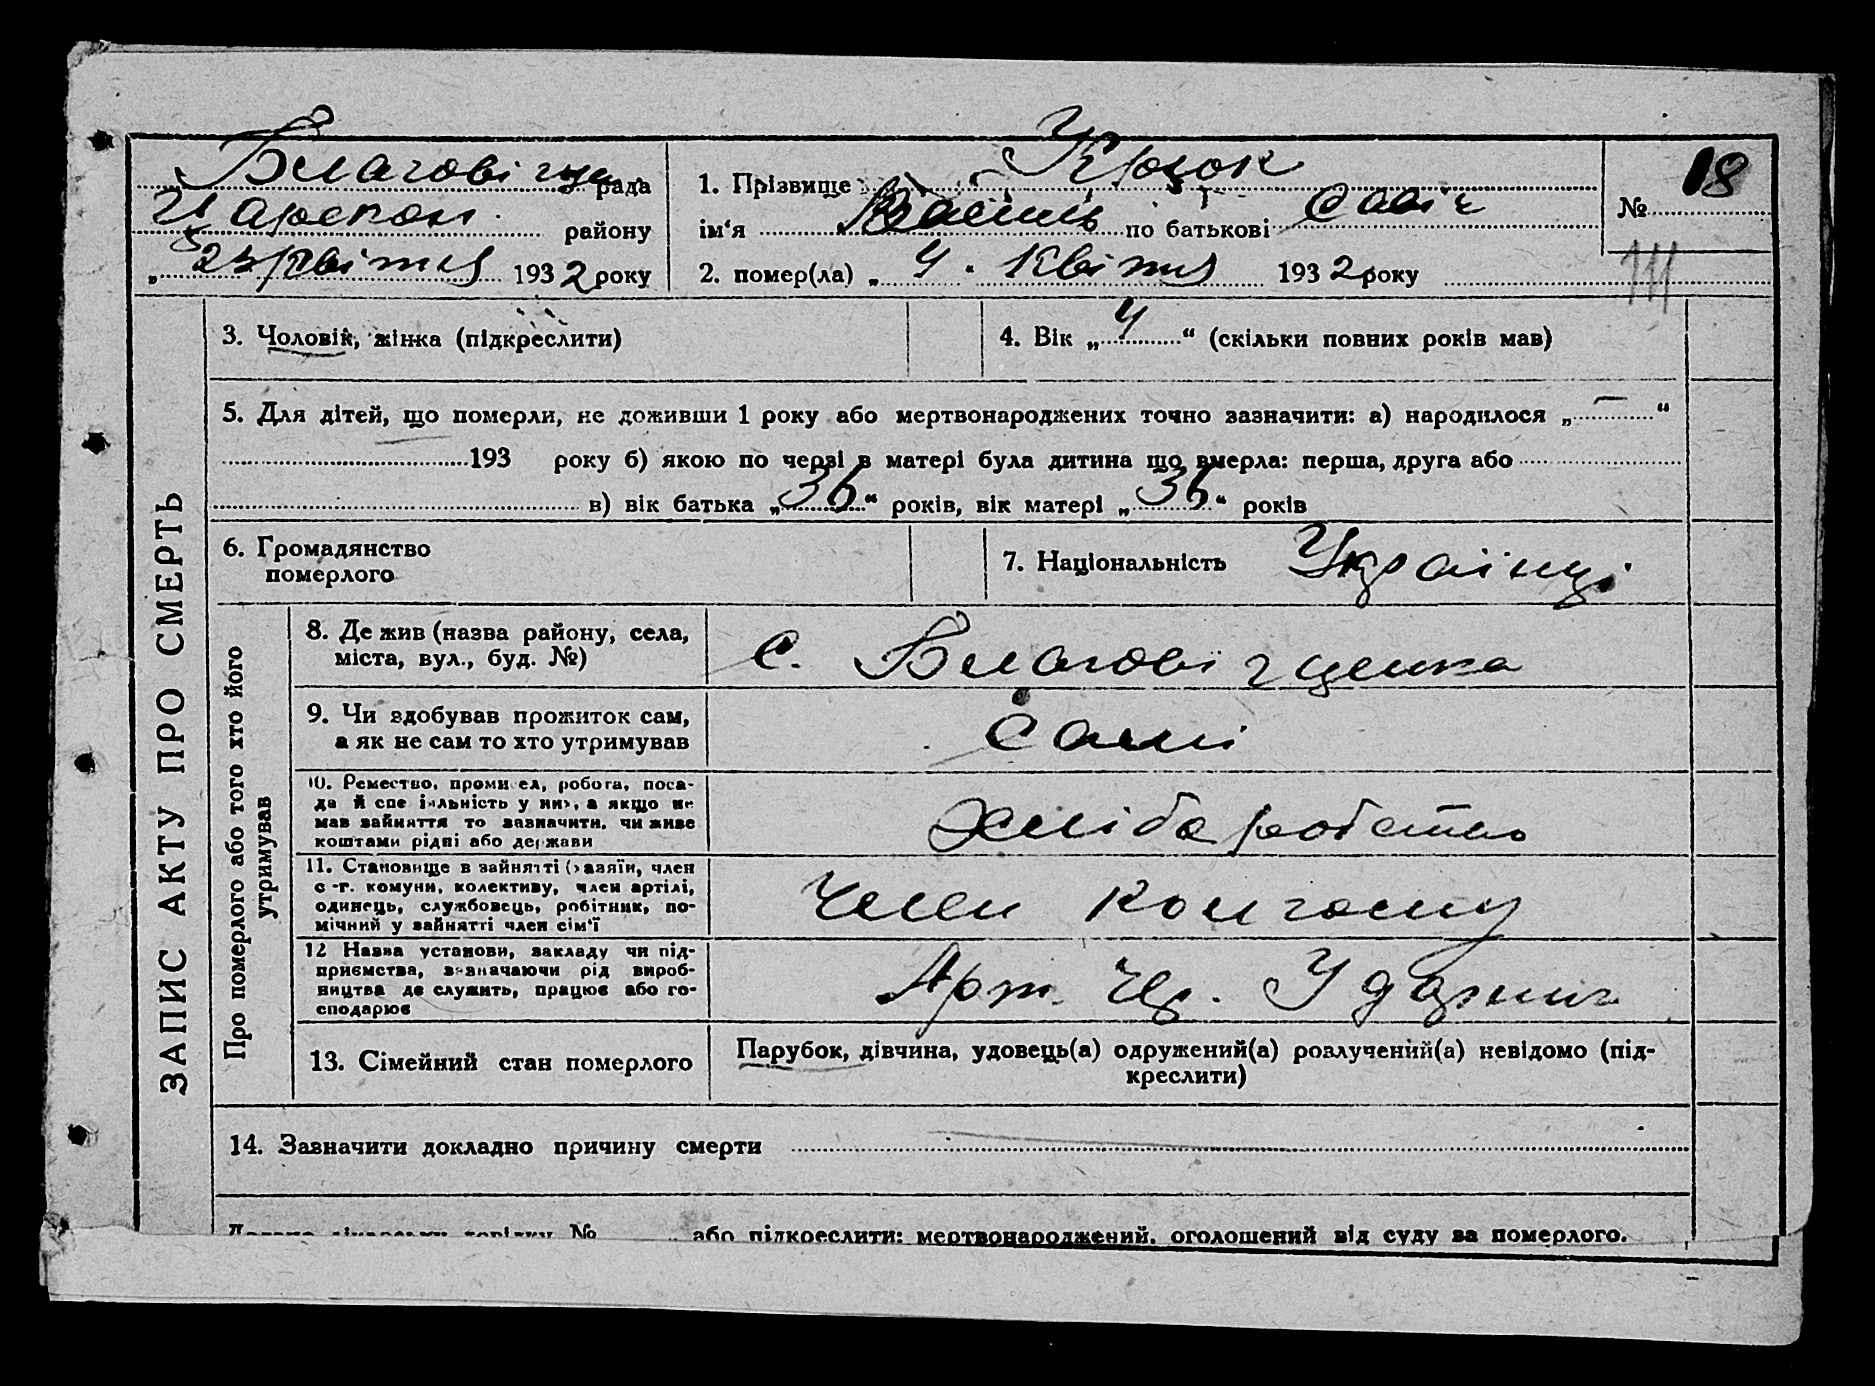 Благовіщ. рада
Царекон. району
„23 квітня 1932 року
1. Прізвище Крюк
ім'я Василь по батькові Савіч
2. помер(ла) „4. Квітня 1932 року
№ 18
ЗАПИС АКТУ ПРО СМЕРТЬ
3. Чоловік, жінка (підкреслити)
4. Вік „4“ (скільки повних років мав)
5. Для дітей, що померли, не доживши 1 року або мертвонароджених точно зазначити: а) народилося „—“
193 року б) якою по черві в матері була дитина що вмерла: перша, друга або
в) вік батька „36“ років, вік матері „36“ років
6. Громадянство
померлого
7. Національність Українці
Про померлого або того хто його
утримував
8. Де жив (назва району, села,
міста, вул., буд. №)
с. Благовіщенка
9. Чи здобував прожиток сам,
а як не сам то хто утримував
Самі
10. Ремество, промисел, робота, поса-
да й спеціяльність у них, а якщо не
мав зайняття то зазначити, чи живе
коштами рідні або держави
хліборобство
11. Становище в зайнятті (хазяїн, член
с.-г. комуни, колективу, член артілі,
одинець, службовець, робітник, по-
мічний у зайнятті член сім'ї
Член колгоспу
12 Назва установи, закладу чи під-
приємства, зазначаючи рід вироб-
ництва де служить, працює або го-
сподарює
Арт. Чер. Ударник
13. Сімейний стан померлого
Парубок, дівчина, удовець(а) одружений(а) розлучений(а) невідомо (під-
креслити)
14. Зазначити докладно причину смерти
№ або підкреслити: мертвонароджений, оголошений від суду за померлого.